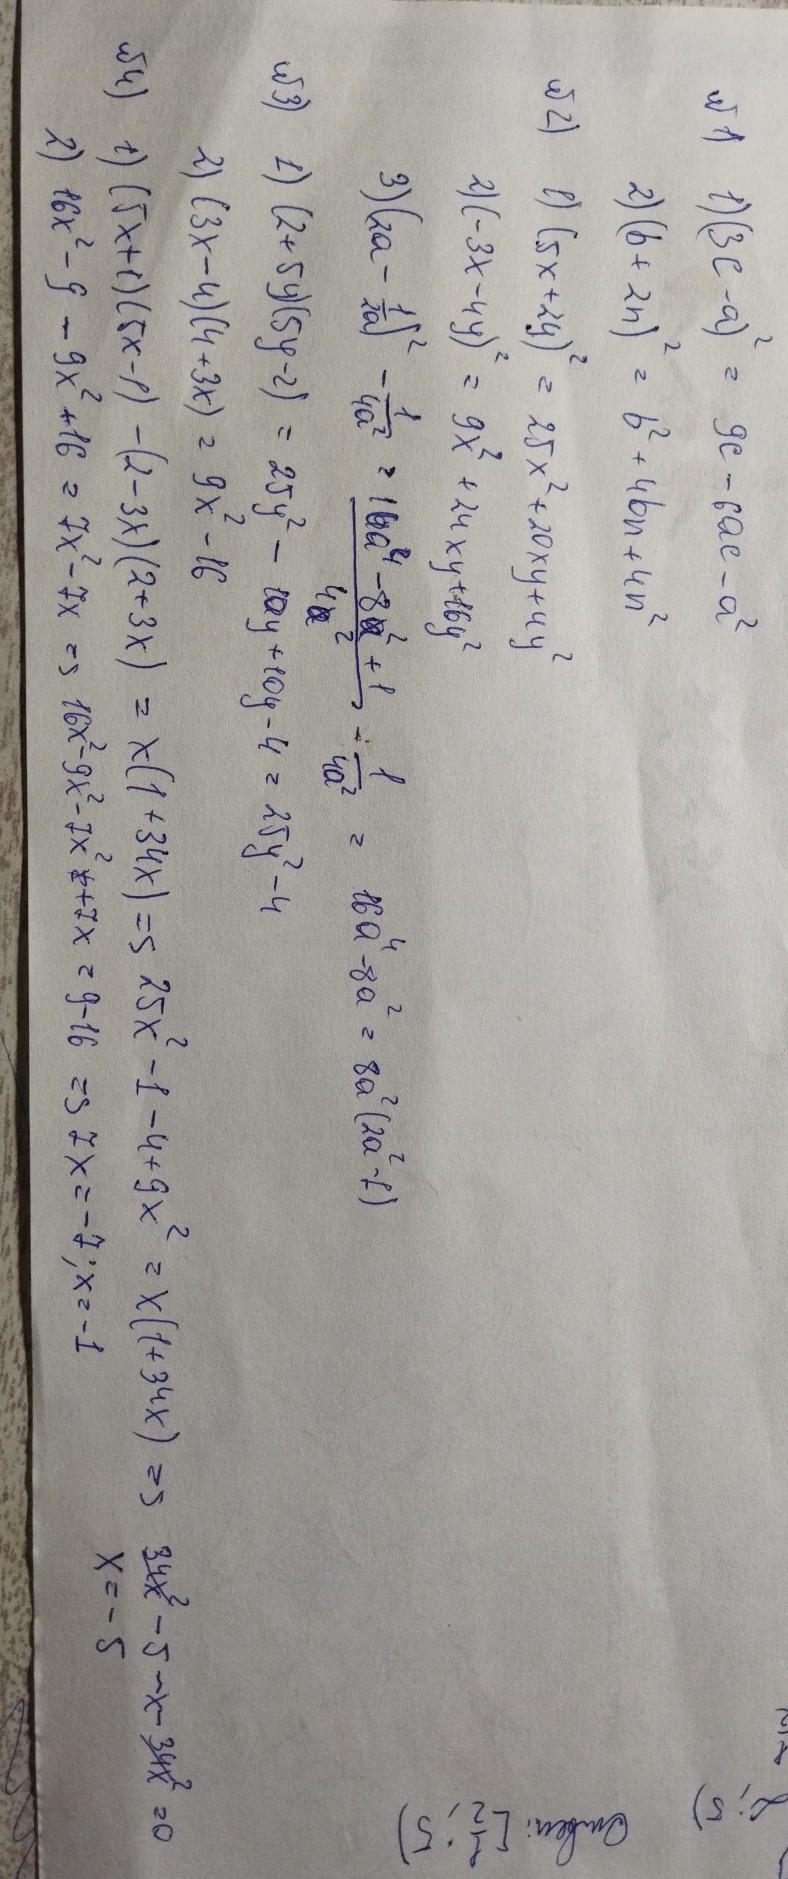 №1 1) (3c-a)² = 9c - 6ac - a²
2) (b + 2n)² = b² + 4bn + 4n²
№2) 1) (5x+2y)² = 25x² + 20xy + 4y²
2) (-3x-4y)² = 9x² + 24xy + 16y²
3) (2a - 1/2a)² - 1/4a² = 16a⁴ - 8a² + 1 / 4a² - 1/4a² = 16a⁴ - 8a² = 8a²(2a²-1)
№3) 1) (2+5y)(5y-2) = 25y² - 10y + 10y - 4 = 25y² - 4
2) (3x-4)(4+3x) = 9x² - 16
№4) 1) (5x+1)(5x-1) - (2-3x)(2+3x) = x(1+34x) => 25x² - 1 - 4 + 9x² = x(1+34x) => 34x² - 5 - x - 34x² = 0
x = -5
2) 16x² - 9 - 9x² + 16 = 7x² - 7x => 16x² - 9x² - 7x² + 7x = 9 - 16 => 7x = -7; x = -1
; 5)
Ответ: [1/2; 5)